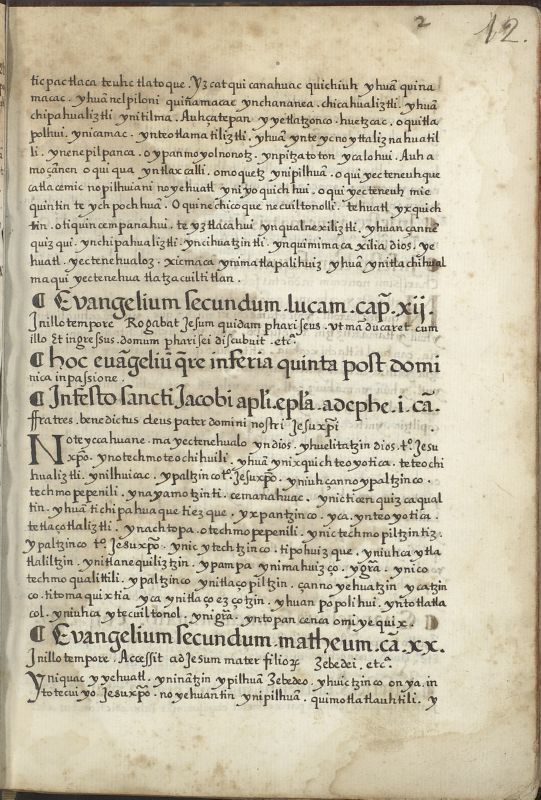 2 12.
tic pac tlaca teuhc tlatoque. Yz cat qui canahuac quichiuh yhuā quina
macac. yhuā nel piloni quiñamacac ynchananea. chicahualiztli. yhuā
chipahualiztli ynitilma. Auhçatepan yyetlatzonco. huetzcac. oquitla
polhui. ynicamac. ynteotlamatiliztli. yhuā ynte ycnoyttaliznahuatil
li. ynenepilpanca. oypanmoyolnonotz. ynpitzatoton ycalohui. Auh a
moçānen oqui qua yntlaxcalli. omoquetz ynipilhuā. oqui yecteneuhque
catlacemic nopilhuiani noyehuatl yniyoquichhui. oqui yecteneuh mie
quintin teychpochhuā. Oquinechico que necuiltonolli. tehuatl yxquich
tin. otiquincempanahui. teyztlacahui ynqualnexiliztli. yhuan çanne
quizqui. ynchipahualiztli. yncihuatzintli. ynquimimacaxilia dios. ye
huatl. yectenehualoz. xicmaca ynimatlapalihuiz yhuā ynitlachihual
ma qui yectenehua tlatzacuiltitlan.
¶ Evangelium secundum lucam. cap̄. xij.
In illo tempore Rogabat Jesum quidam phariseus. vt mā ducaret cum
illo Et ingressus. domum pharisei discubuit. etcᵃ.
¶ hoc euāgeliū q̄re inferia quinta post domi
nica inpassione.
¶ In festo sancti Jacobi apl̄i. epl̄a. ad ephe. i. cā.
ffratres. benedictus deus pater domini nostri Jesu xp̄i
Noteyccahuane. ma yectenehualo yn dios. yhuelitatzin dios. tᵒ. Jesu
xp̄o. ynotechmoteochihuili. yhuā ynixquich teoyotica. teteochi
hualiztli. ynilhuicac. ypaltzinco tᵒ. Jesuxp̄o. yniuh çanno ypaltzinco.
techmopepenili. ynayamo tzinti. cemanahuac. ynicticenquizcaqual
tin. yhuā tichipahuaque tiezque. yxpantzinco. yca. ynteoyotica.
tetlaçotlaliztli. ynachtopa. otechmopepenili. ynic techmopiltzintiz.
ypaltzinco tᵒ. Jesuxp̄o. ynicytechtzinco. tipohuizque. yniuhca ytla
tlaliltzin. ynitlanequiliztzin. ypampa ynimahuizço. ygrā. ynico
techmoqualitili. ypaltzinco ynitlaçopiltzin. çanno yehuatzin ycatzin
co. titomaquixtia yca ynitlaçoezçotzin. yhuan popolihui. yntotlatla
col. yniuhca ytecuiltonol. ynigrā. yntopan cenca omiyequix.
¶ Evangelium secundum. matheum. cā. xx.
In illo tempore. Accessit ad Jesum mater filioꝝ Zebedei, etcᵃ.
Yniquac yyehuatl. yninātzin ypilhuā Zebedeo. yhuictzinco onya. in
totecuiyo. Jesuxp̄o. noyehuantin ynipilhuā. quimotlatlauhtili. y